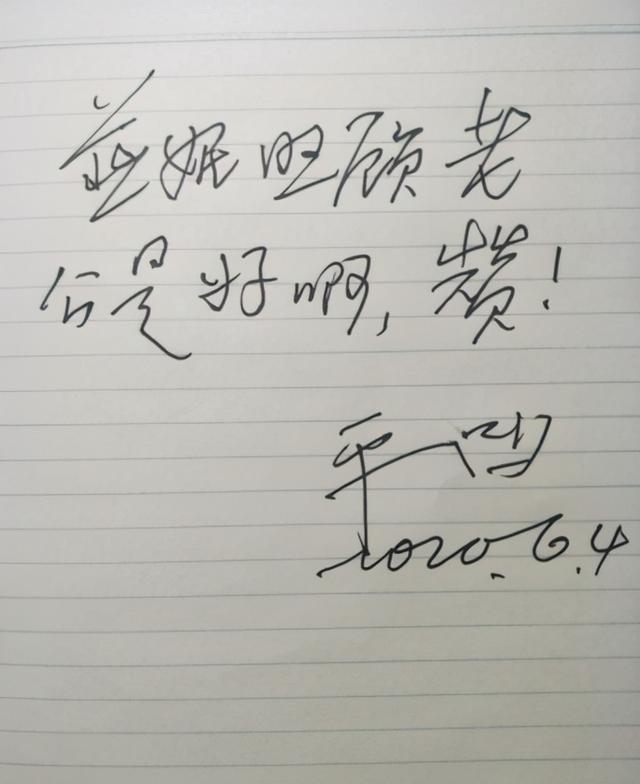 妮旺顾老
公是好啊,赞!
平
2020.6.4